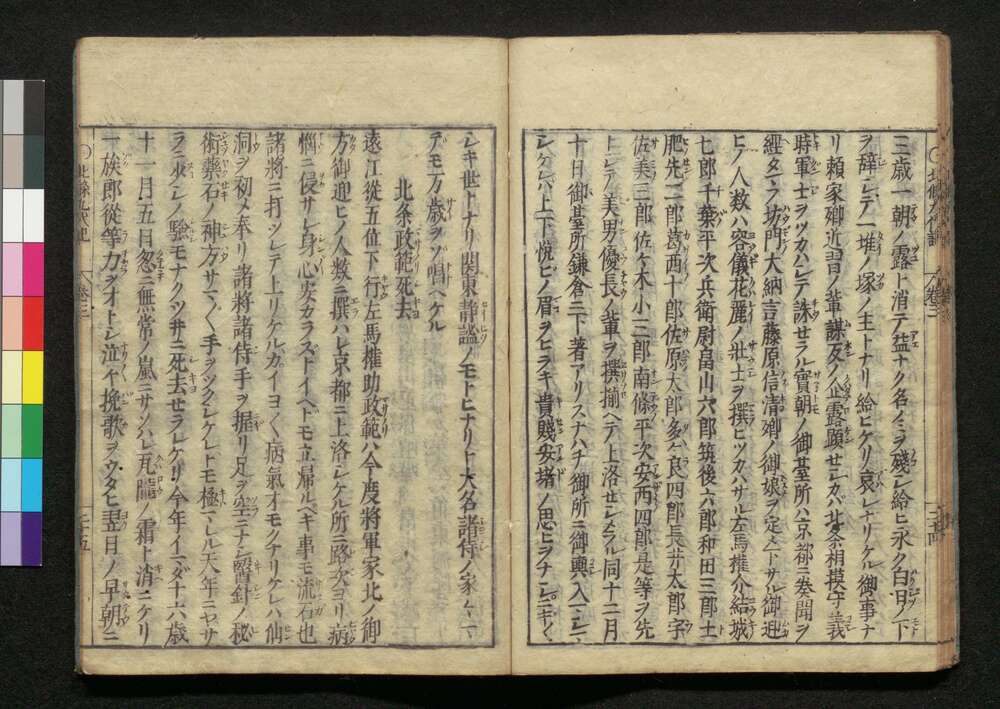 三歳一朝ノ露ト消テ益ナク名ノミヲ殘シ給ヒ永ク白日ノ下
ヲ辞シテ一堆ノ塚ノ主トナリ給ヒケリ哀レナリケル御事ナ
リ頼家卿近習ノ輩謀反ノ企露顕セシカバ北条相摸守義
時軍士ヲツカハシテ誅セラル實朝ノ御臺所ハ京都ニ奏聞ヲ
經タマヲ坊門大納言藤原信清卿ノ御娘ヲ定メ下サル御迎
ヒノ人数ハ容儀花麗ノ壮士ヲ撰ヒツカハサル左馬権介結城
七郎千葉平次兵衛尉畠山六郎筑後六郎和田三郎土
肥先二郎葛西十郎佐原太郎多々良四郎長井太郎宇
佐美三郎佐々木小三郎南條平次安西四郎是等ヲ先
トシテ美男優長ノ輩ヲ撰揃ヘテ上洛セシメラル同十二月
十日御臺所鎌倉ニ下著アリスナハチ御所ニ御輿入マシマ
シケレハ上下悦ビノ眉ヲヒラキ貴賤安堵ノ思ヒヲナシニギハ
シキ世トナリ関東静謐ノモトヒナリト大名諸侍ノ家々マ
デモ万歳ヲソ唱ヘケル
北条政範死去
遠江從五位下行左馬権助政範ハ今度將軍家北ノ御
方御迎ヒノ人数ニ撰ハレ京都ニ上洛シケル所ニ路次ヨリ病
惱ニ侵サレ身心安カラズトイヘドモ立帰ルベキ事モ流石也
諸將ニ打ツレテ上リケルカイヨ〱病氣オモクナリケレハ仙
洞ヲ初メ奉リ諸將諸侍手ヲ握リ足ヲ空ニナシ醫針ノ秘
術藥石ノ神方サマ〲手ヲツクシケレトモ極マレル天年ニヤサ
ラニ露シノ驗モナクツ井ニ死去セラレケリ今年イマダ十六歳
十一月五日忽ニ無常ノ嵐ニサソハレ瓦隴ノ霜ト消ニケリ
一族郎從等力ヲオトシ泣々挽歌ヲウタヒ翌月ノ早朝ニ
北條九代記
巻三
二十五